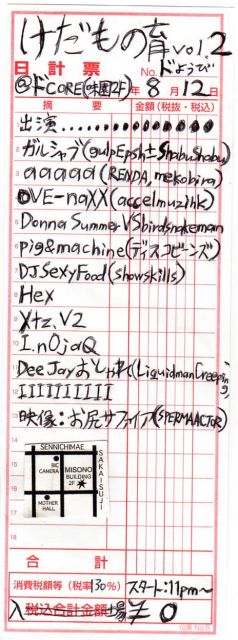 けだもの育 vol.2
日計票 No. ドようび
@ドCORE(味園2F) 年 8 月 12 日
摘要 金額(税抜・税込)
1 出演
2 ガルシャブ(gulpEpsh±ShabuShabu)
3 aaaaa(RENDA, mekobira)
4 OVE-naXX(accelmuzihk)
5 Donna Summer VS birdsnakeman
6 pig&machine(ディスコビーンズ)
7 DJ SexyFood(showskills)
8 Hex
9 Xtz.V2
10 I.nOjaQ
11 DeeJay おしゃれ(LiquidmanCreeping)
12 IIIIIIIIII
13 映像:お尻サファイア(SPERMAACTOR)
14
15
16
17
18
SENNICHIMAE
SAKAISUJI
BIC CAMERA
MISONO BUILDING 2F
MOTHER HALL
合計
消費税額等(税率130%) スタート:11pm~
入 税込合計金額 場 ¥0